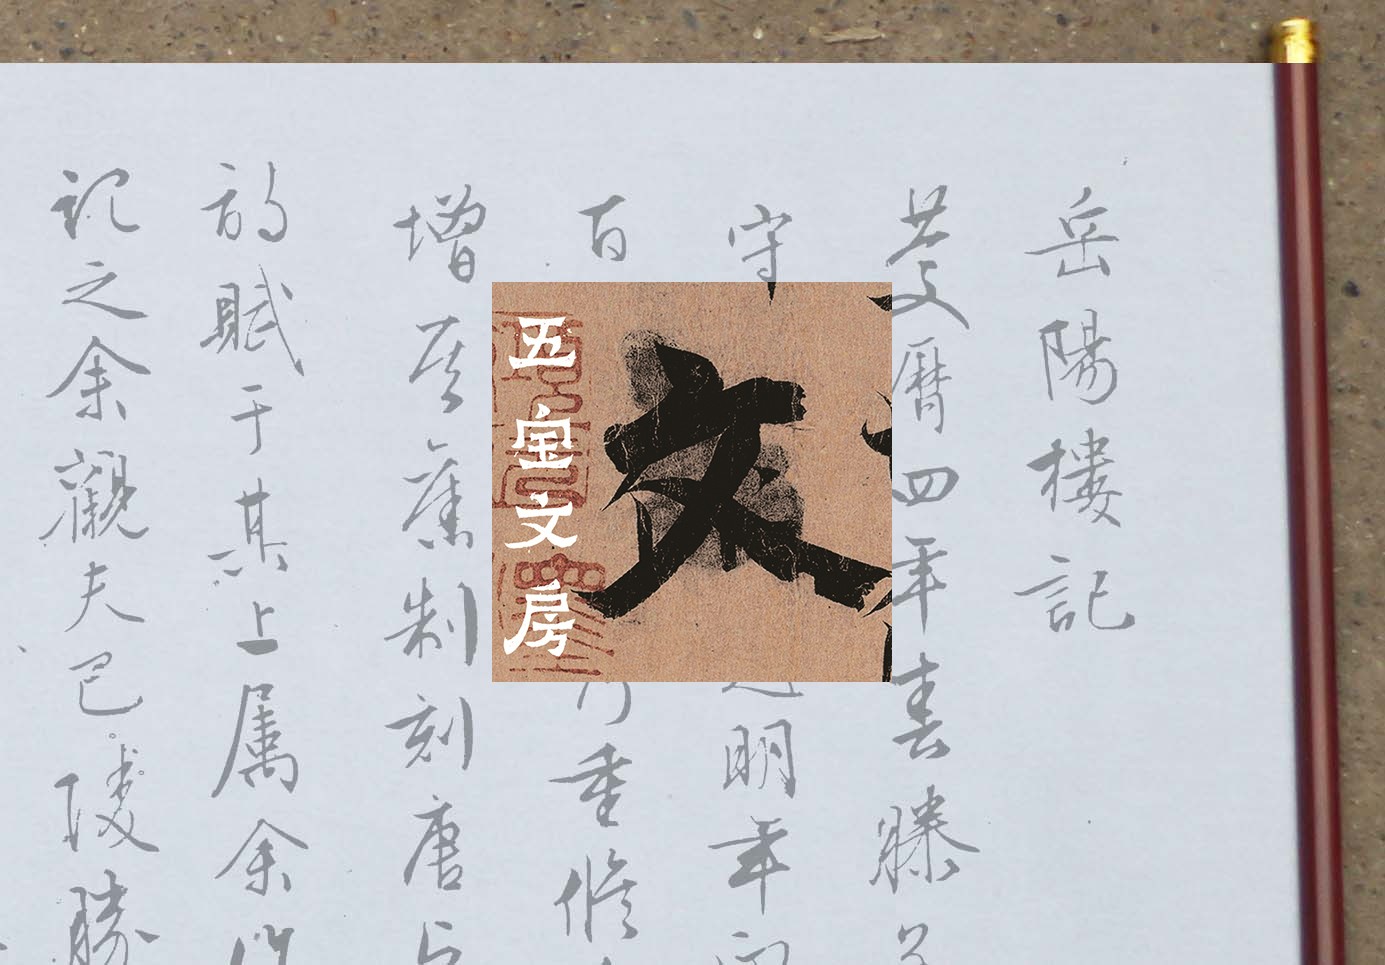 岳陽樓記
慶曆四年春滕
守
明年
百
重修
增其舊制刻唐
詩賦于其上屬余作
記之余觀夫巴陵勝
文
五金文房